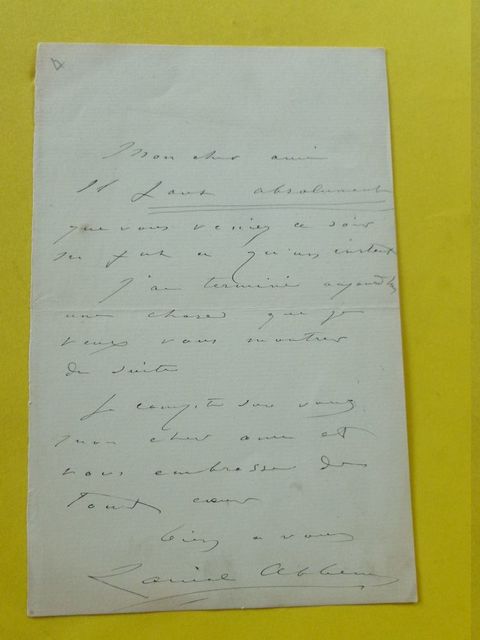 Mon cher ami
Il faut absolument
que vous veniez ce soir
ne fut ce qu'un instant
J'ai terminé aujourd'hui
une chose que je
veux vous montrer
de suite
Je compte sur vous
mon cher ami et
vous embrasse de
tout cœur
bien a vous
Louise Abbema